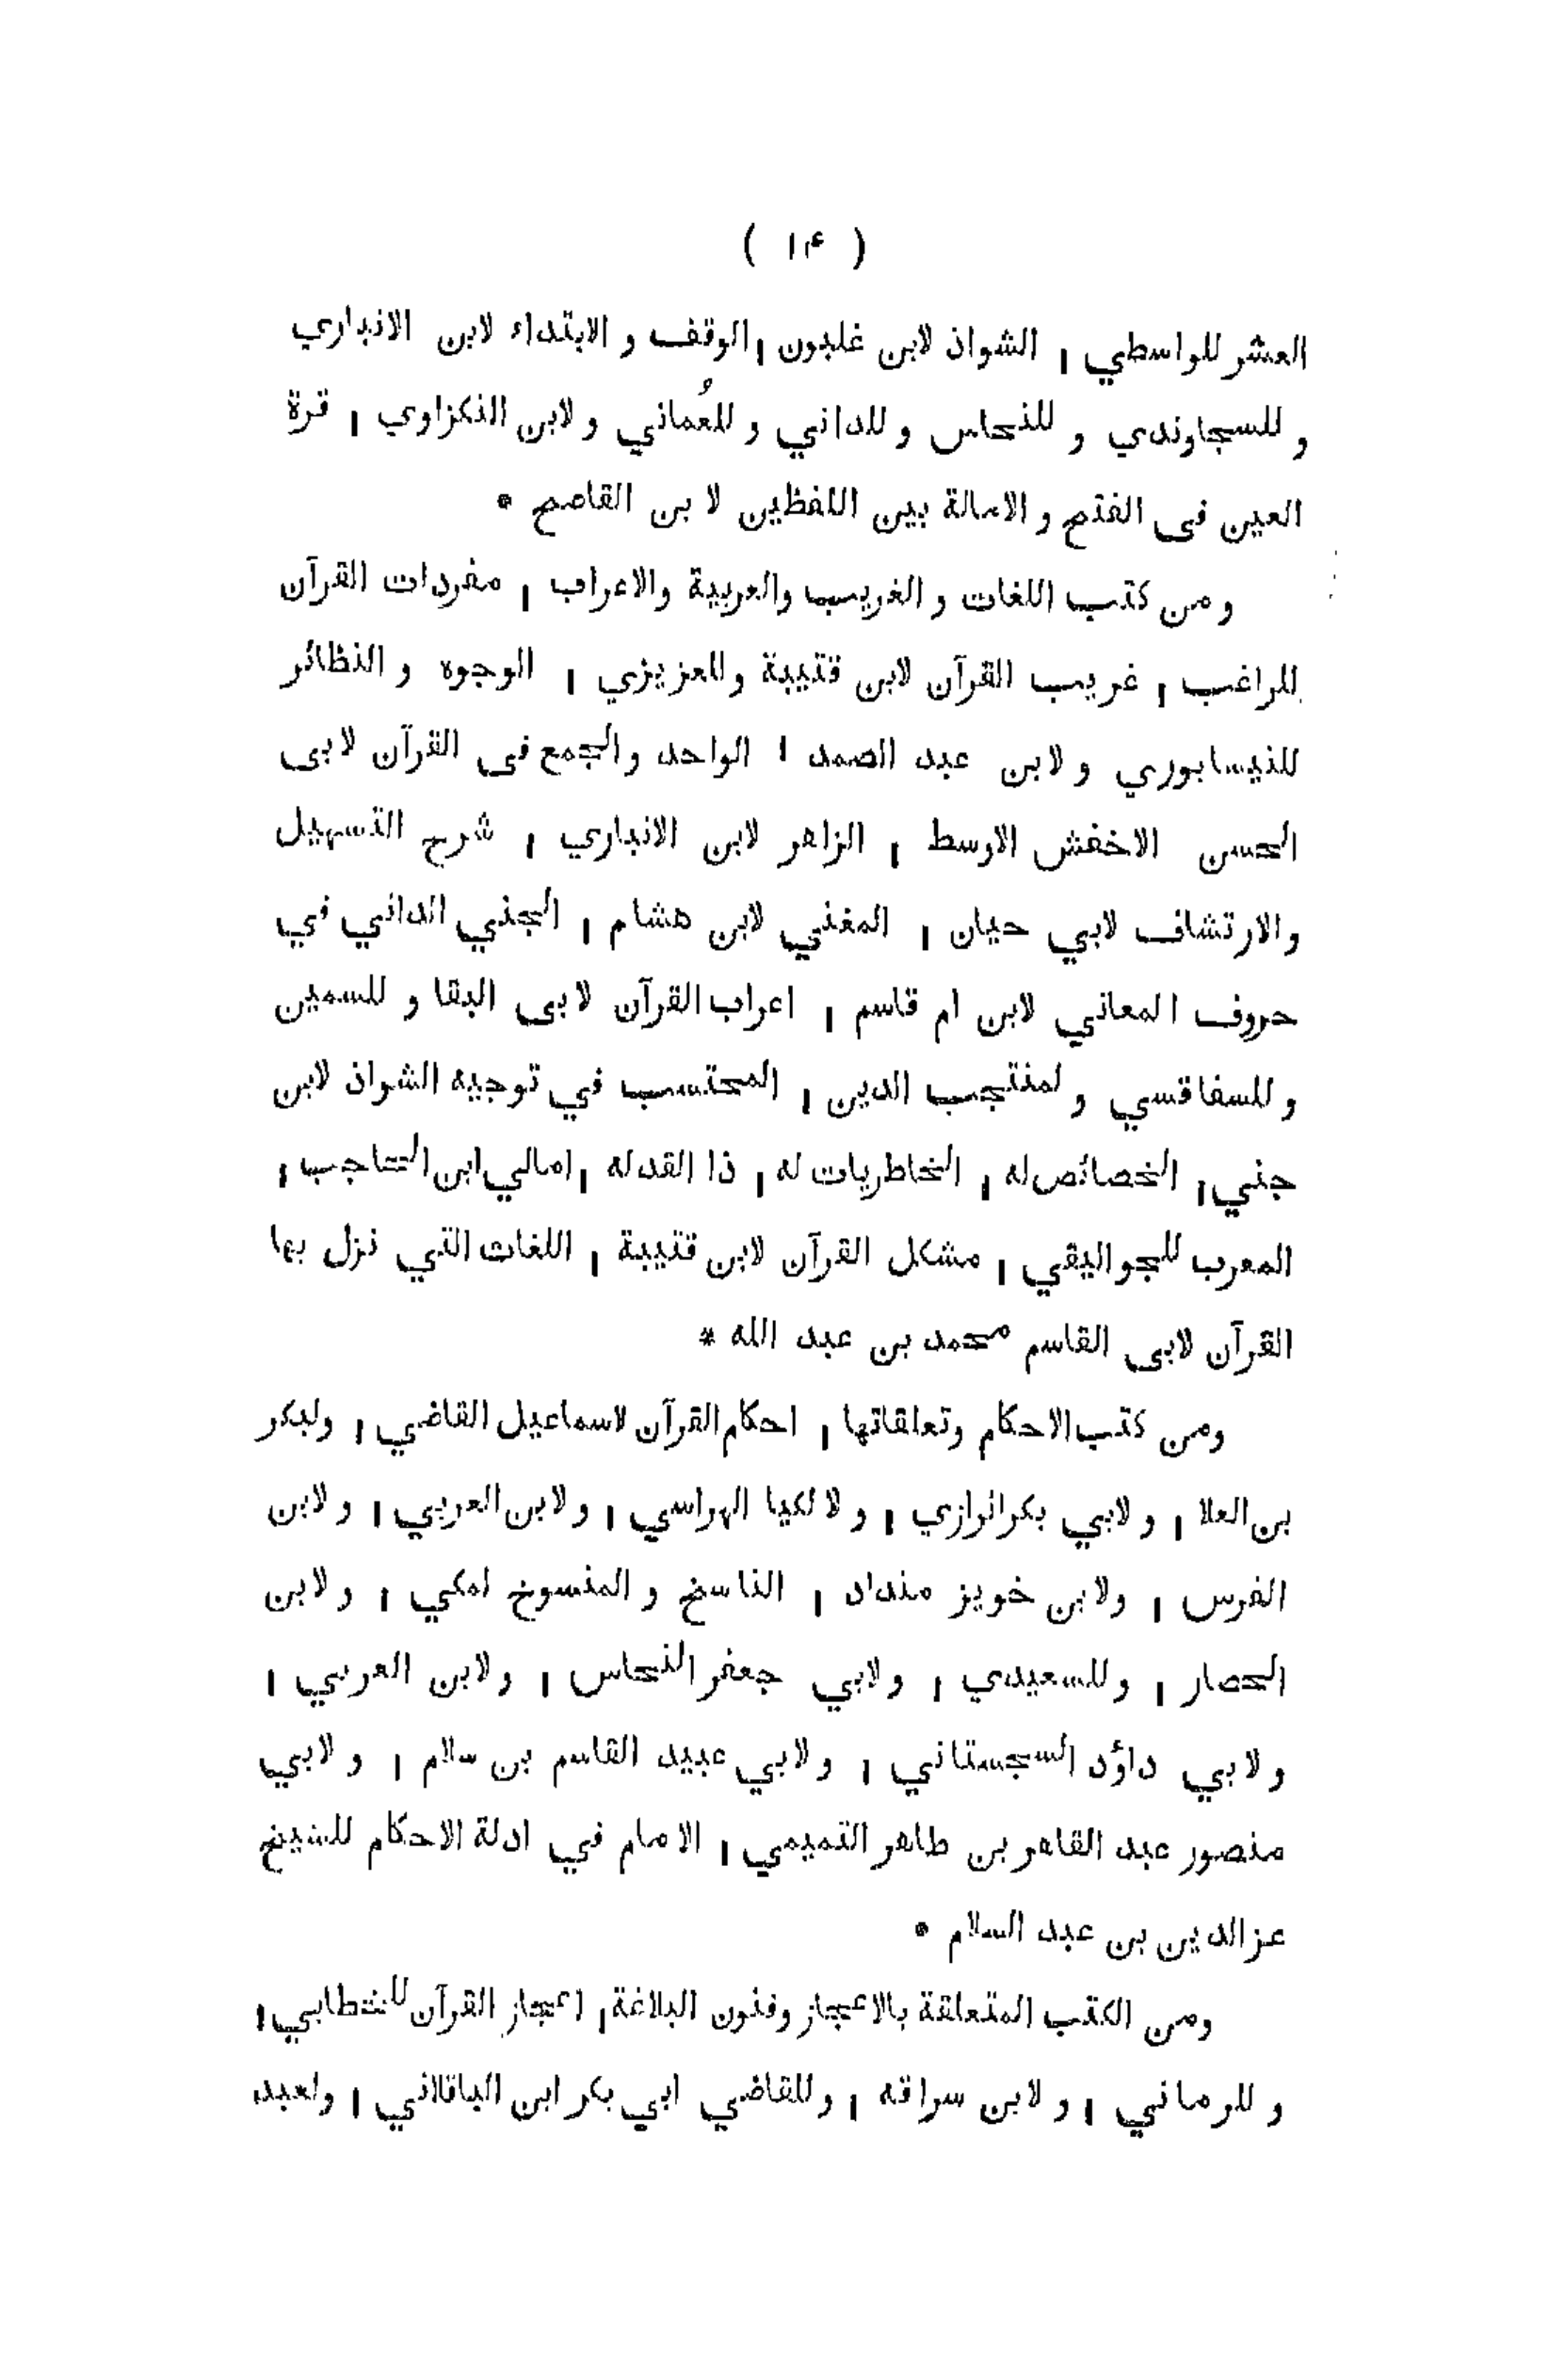 ( ۱۴ )
العشر للواسطي ا الشواذ لابن غلبون ا الوقف و الابتداء لابن الانباري
و للسجاوندي و للنحاس و للداني و للعُماني و لابن النكزاوي ا قرة
العين فى الفتح و الامالة بين اللفظين لا بن القاصح *
ومن كتب اللغات و الغريب والعربية والاعراب ا مفردات القرآن
للراغب ا غريب القرآن لابن قتيبة وللعزيزي ا الوجوه و النظائر
للنيسابوري ولابن عبد الصمد ا الواحد والجمع فى القرآن لابى
الحسن الاخفش الاوسط ا الزاهر لابن الانباري ا شرح التسهيل
والارتشاف لابي حيان ا المغني لابن هشام ا الجني الداني في
حروف المعاني لابن ام قاسم ا اعراب القرآن لابى البقا و للسمين
وللسفاقسي ولمنتجب الدين ا المحتسب في توجيه الشواذ لابن
جني ا الخصائص له ا الخاطريات له ا ذا القد له ا امالي ابن الحاجب ا
المعرب للجواليقي ا مشكل القرآن لابن قتيبة ا اللغات التي نزل بها
القرآن لابى القاسم محمد بن عبد الله *
ومن كتب الاحكام وتعلقاتها ا احكام القرآن لاسماعيل القاضي ا ولبكر
بن العلا ا ولابي بكر الرازي ا و لالكيا الهراسي ا ولابن العربي ا ولابن
الفرس ا ولابن خويز منداد ا الناسخ و المنسوخ لمكي ا ولابن
الحصار ا وللسعيدي ا ولابي جعفر النحاس ا ولابن العربي ا
ولابي داؤد السجستاني ا ولابي عبيد القاسم بن سلام ا ولابي
منصور عبد القاهر بن طاهر التميمي ا الامام في ادلة الاحكام للشيخ
عزالدين بن عبد السلام *
ومن الكتب المتعلقة بالاعجاز وفنون البلاغة ا اعجاز القرآن للخطابي ا
و للرماني ا ولابن سراقه ا وللقاضي ابي بكر ابن الباقلاني ا ولعبد